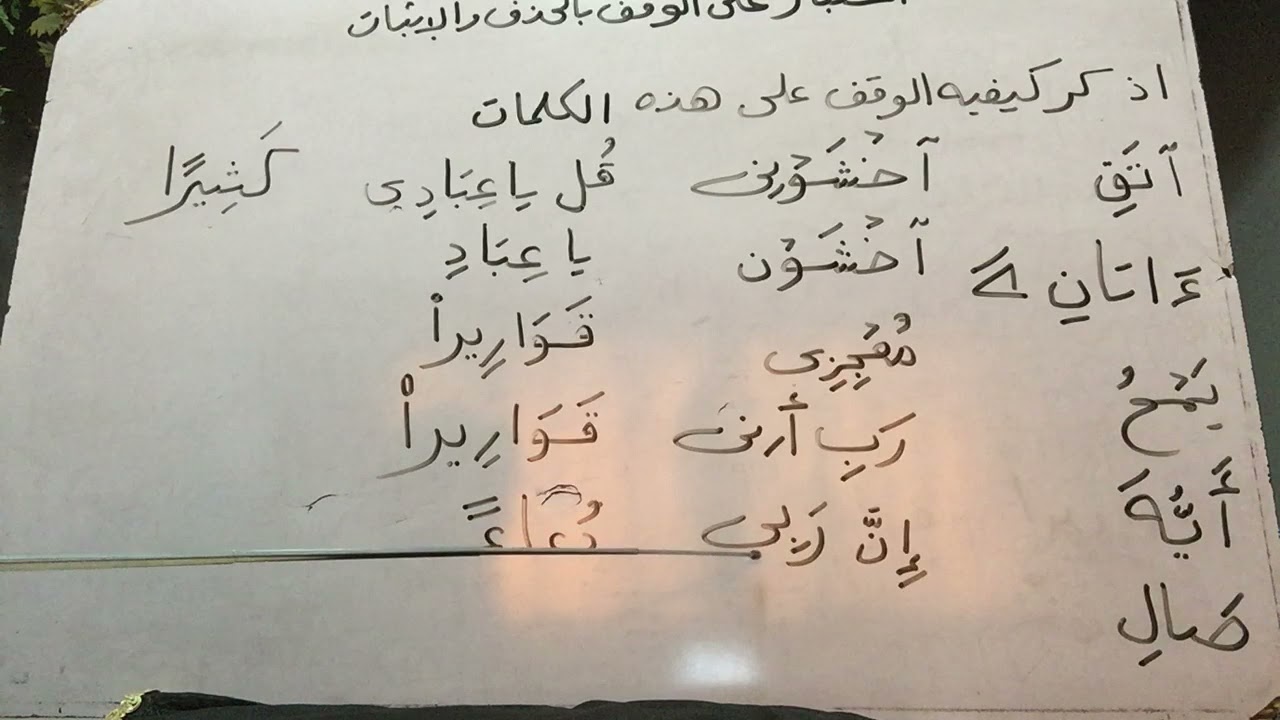 على الوقف بالحذف والإثبات
اذكر كيفيه الوقف على هذه الكلمات
ٱتَقِ ٱخۡشَوۡنِى قُل يا عِبَادِي كَثِيرًا
ءَاتَانِۦ ٱخۡشَوۡن يا عِبَادِ
مُعۡجِزِى قَوَارِيراْ
يَمۡحُ رَبِ أَرِنى قَوَارِيراْ
أَيُّهَ إِنَّ رَبِى دُعَاءً
صَالِ